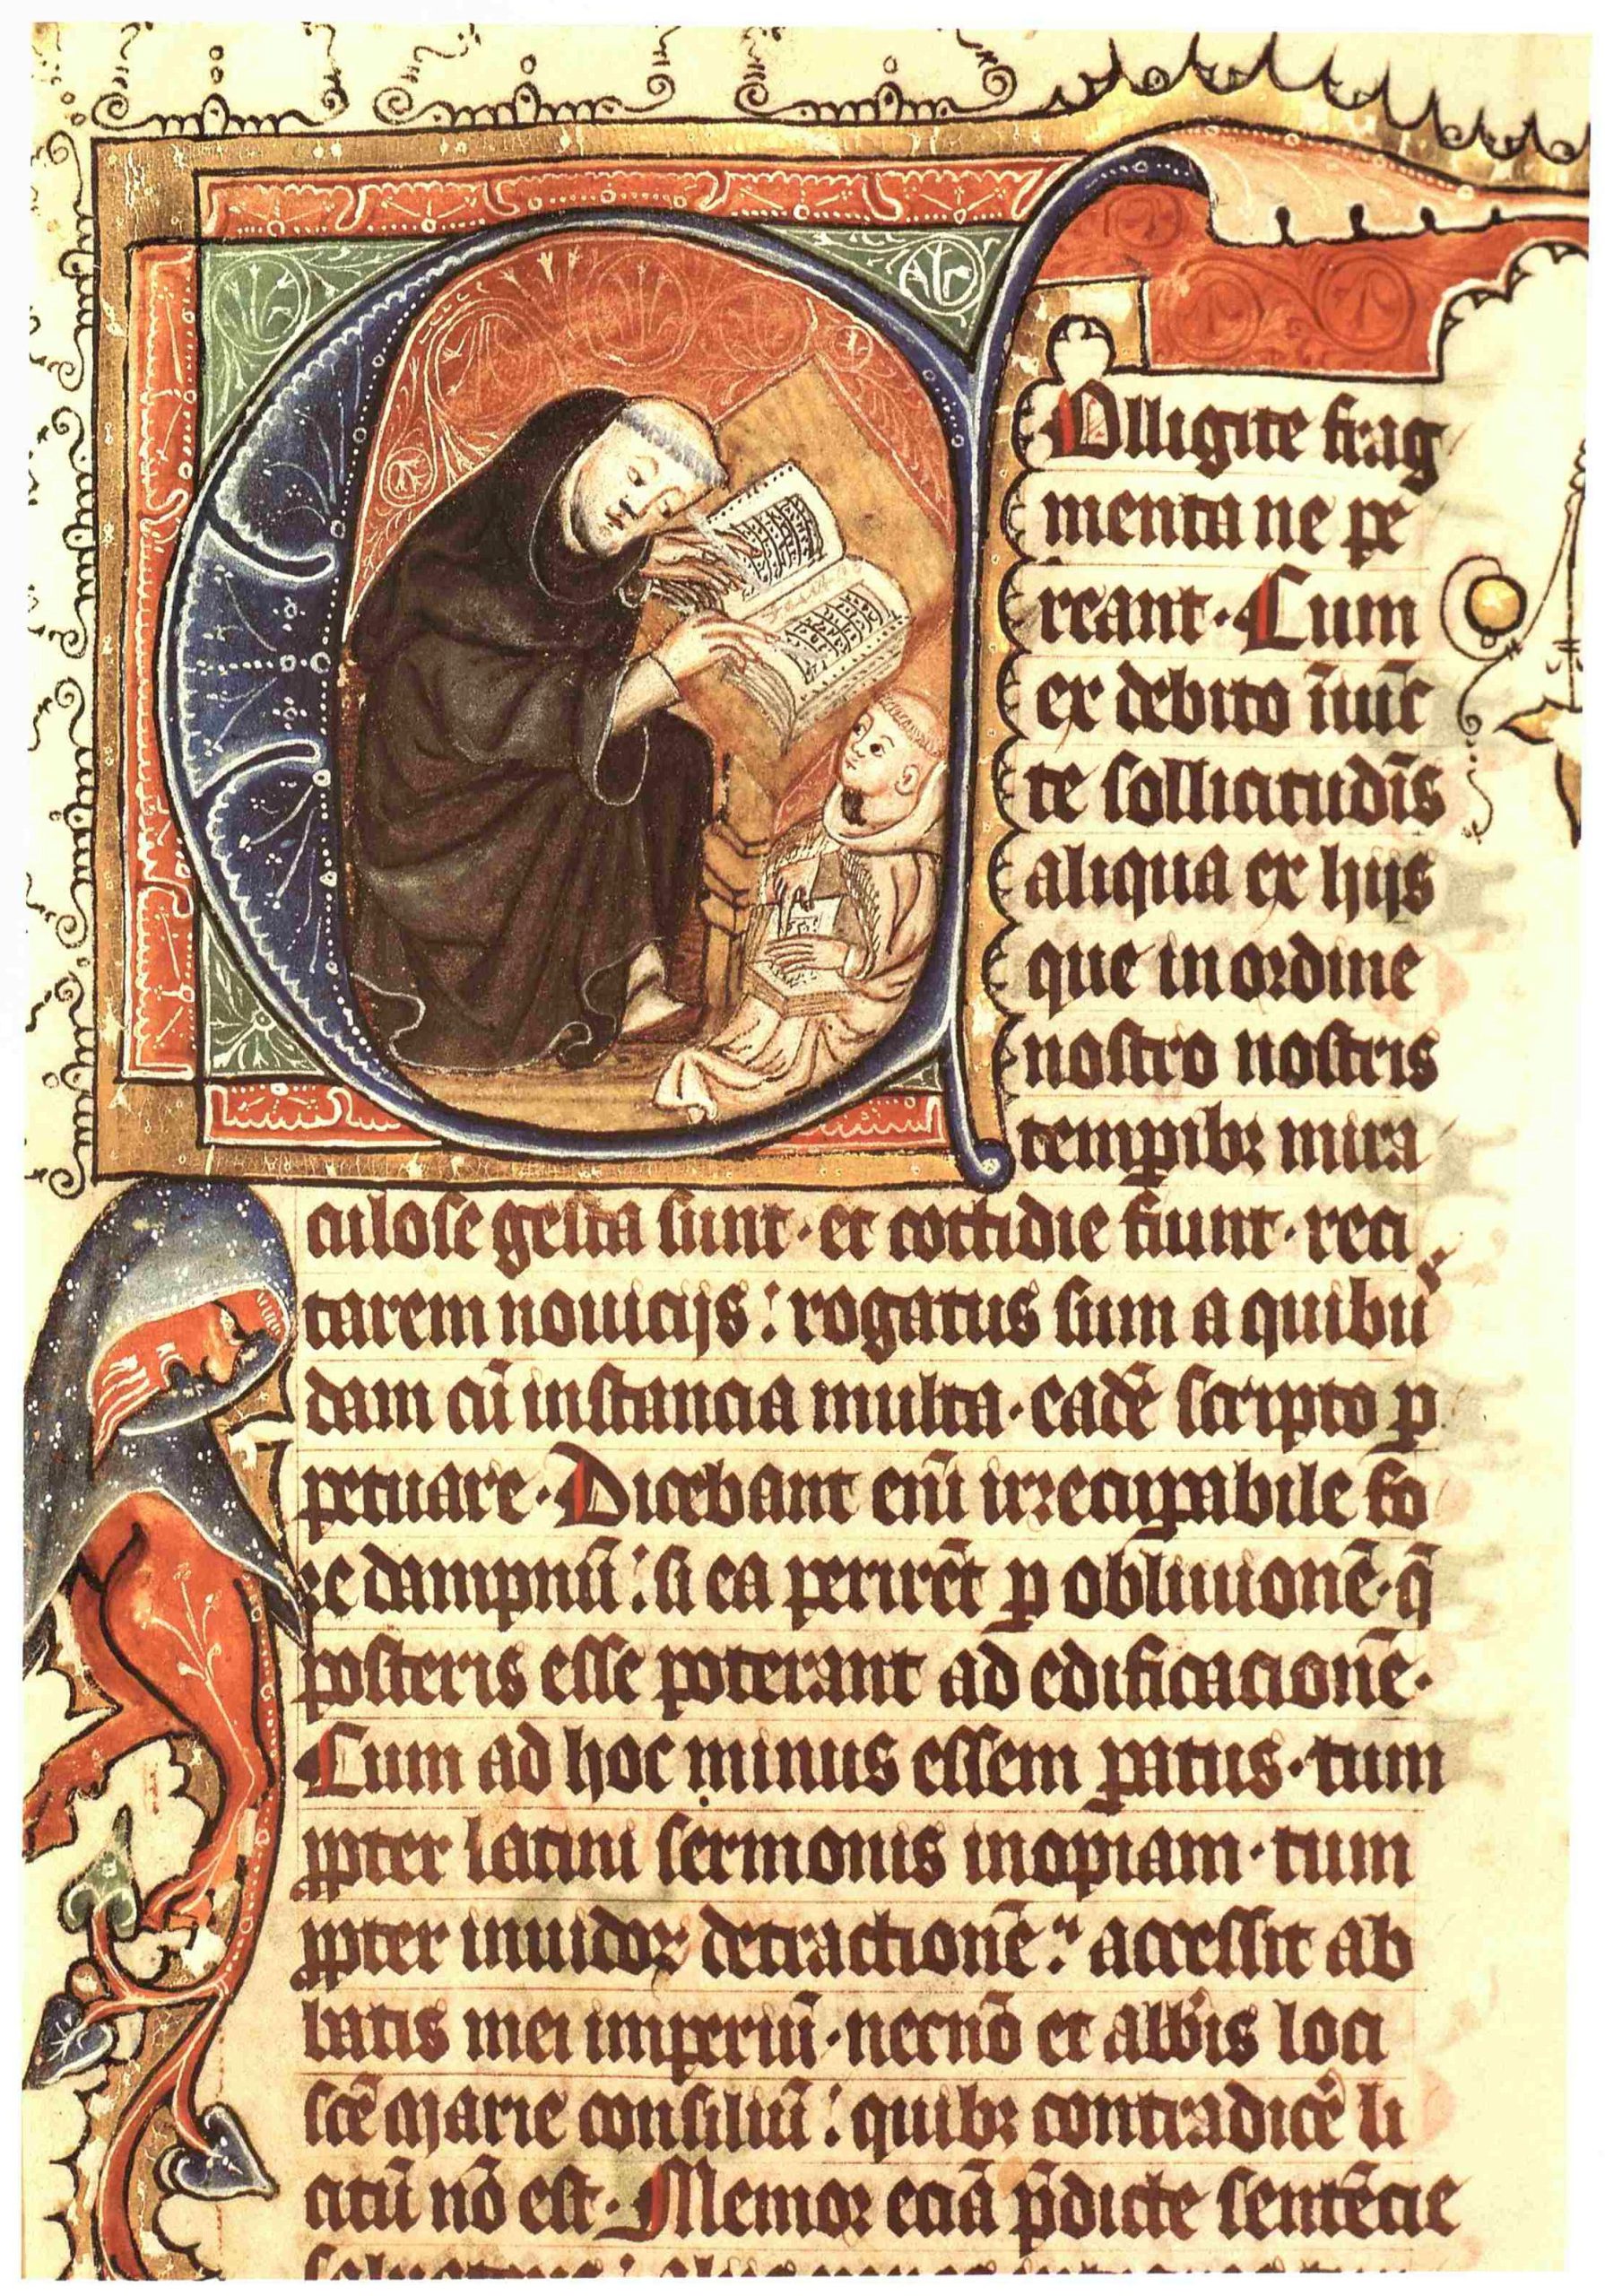 Colligite frag
menta ne pe
reant. Cum
ex debito iniūc
te sollicitudīs
aliqua ex hijs
que in ordine
nostro nostris
temꝑibꝫ mira
culose gesta sunt. et cottidie fiunt. reci
tarem nouicijs: rogatus sum a quibuˢ
dam cū instancia multa. eadē scripto ꝑ
petuare. Dicebant eni̅ irrecuꝑabile fo
re dampnū: si ea perirēt ꝑ obliuionē. q̄
posteris esse poterant ad edificacionē.
Cum ad hoc minus essem ꝑatus. tum
ꝓpter latini sermonis inopiam. tum
ꝓpter inuidoꝝ detractionē: accessit ab
batis mei imperiū. necnō et abb̅is loci
scē Marie consiliū: quibꝫ contradicē li
citū nō est. Memor eciā p̄dicte sentēcie